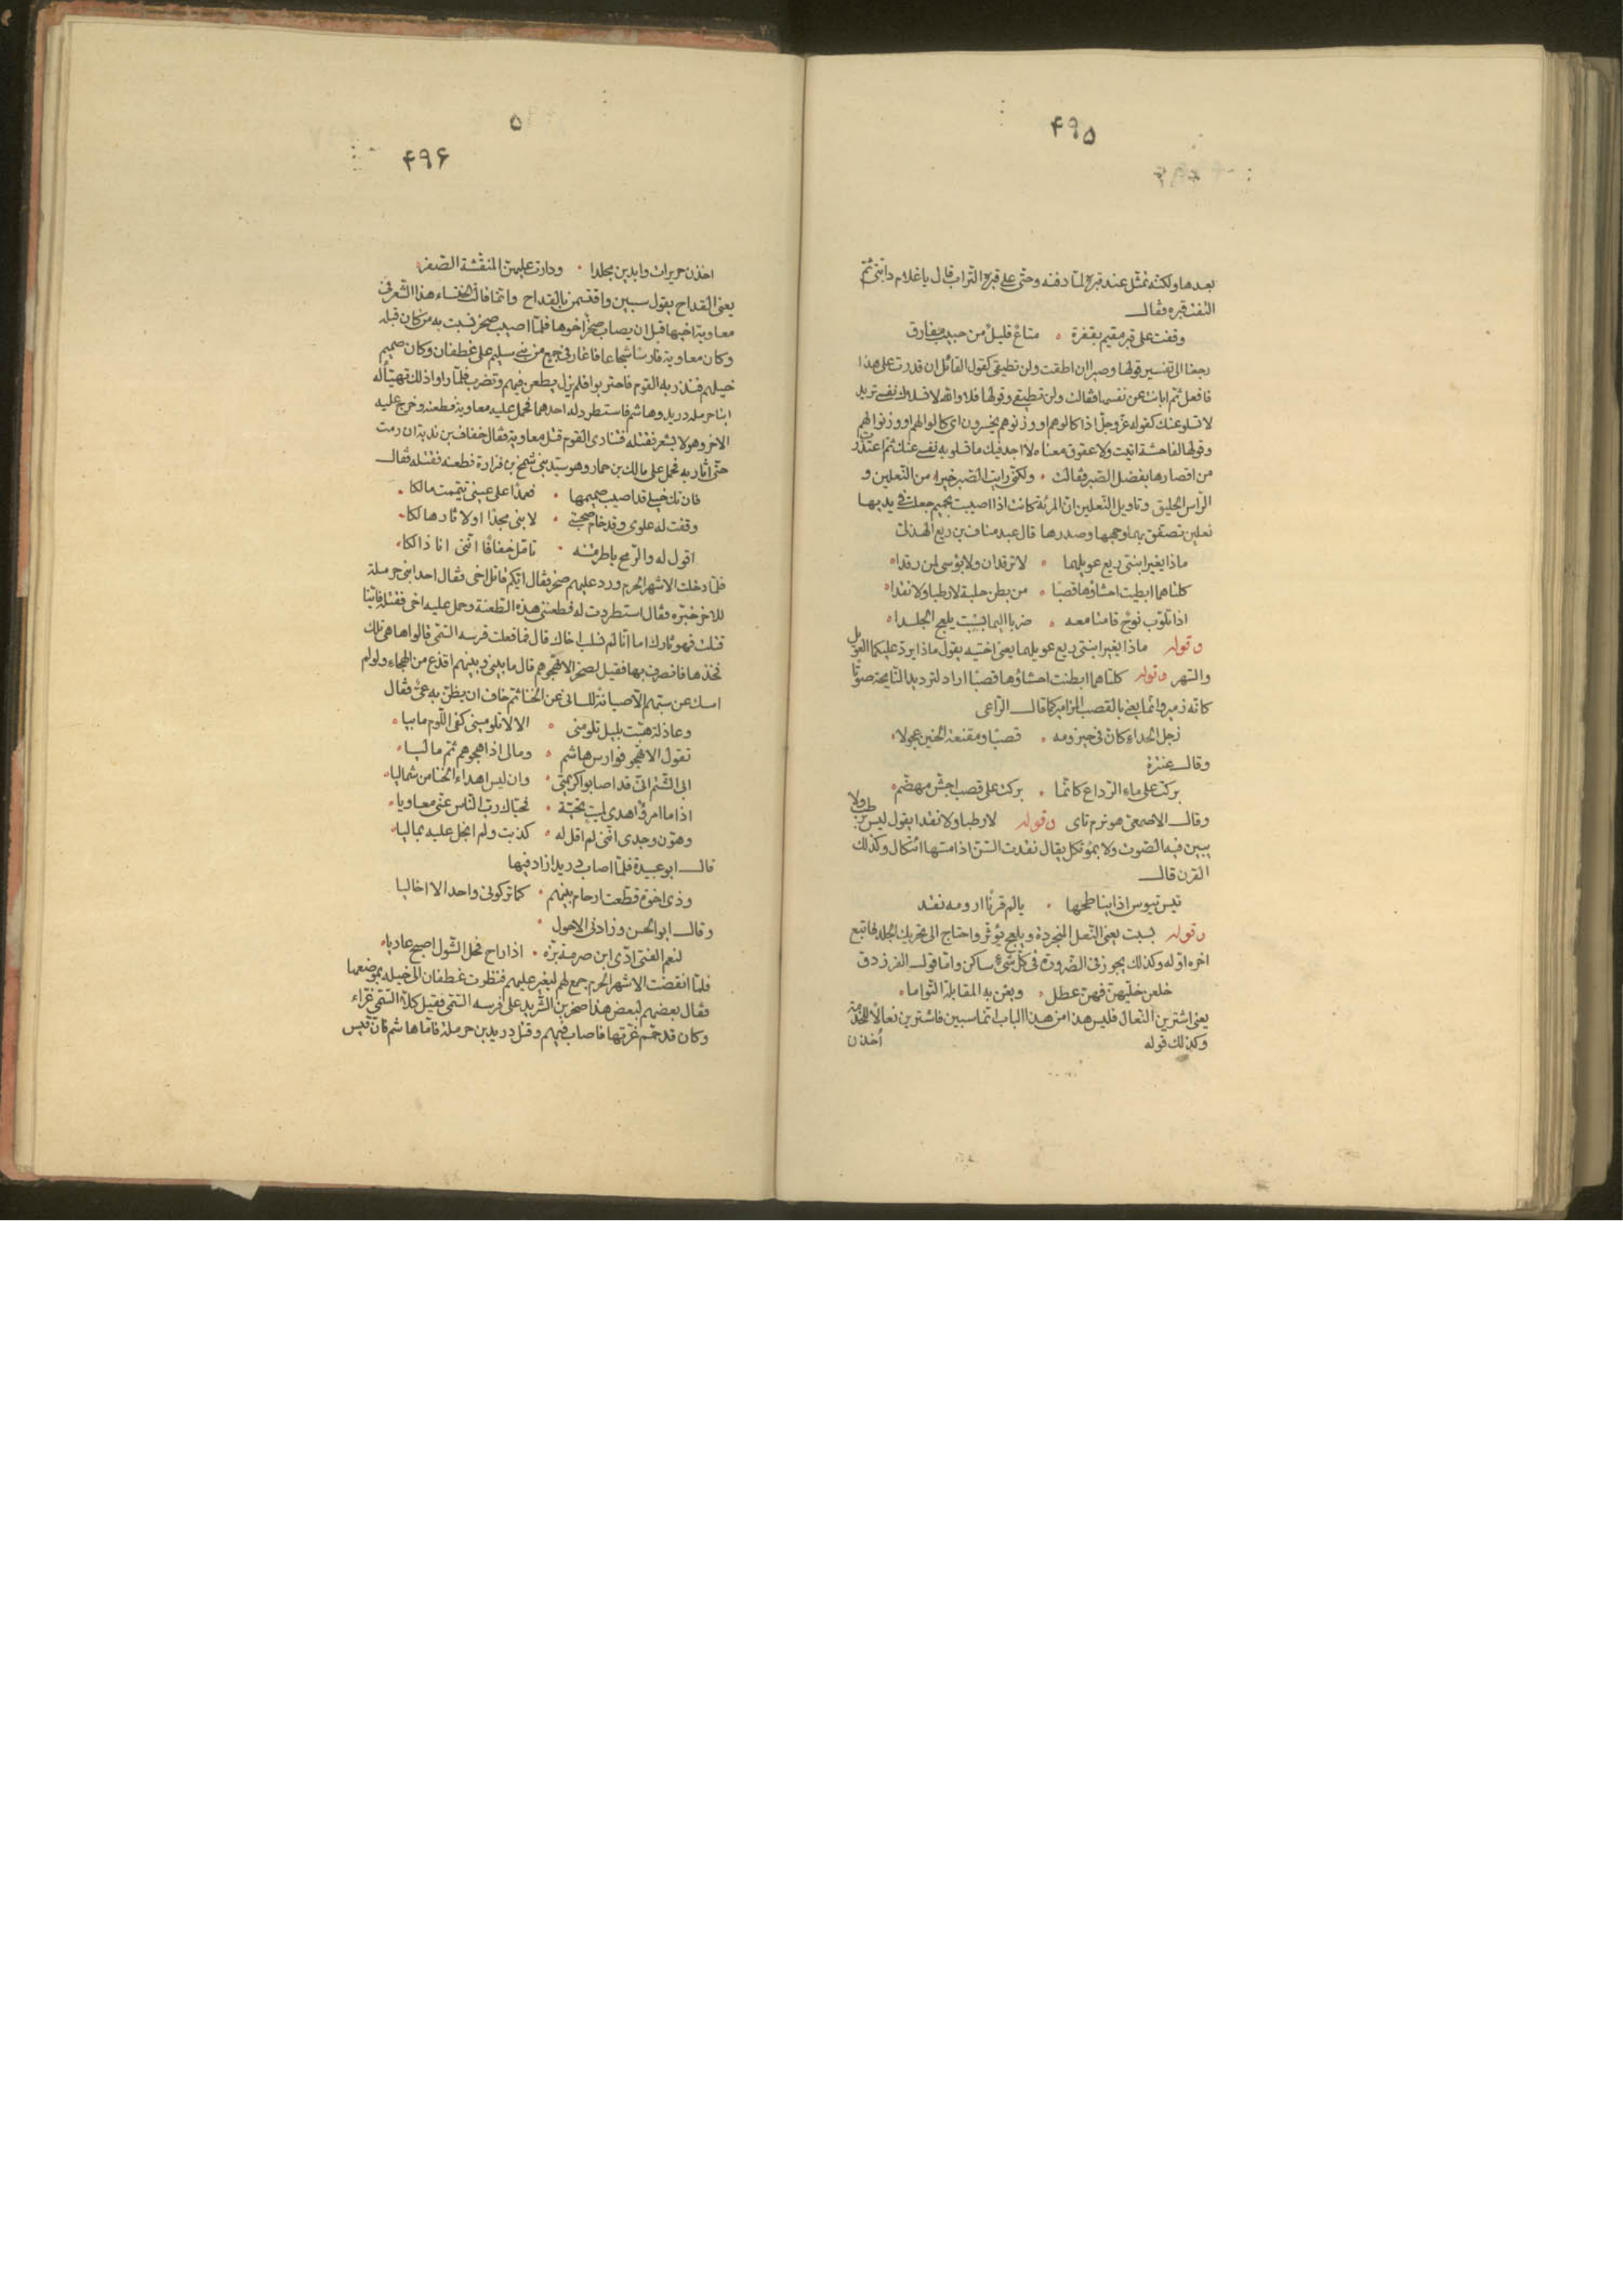 ۴۹۵
بعدها ولكنه تمثل عند قبره لما دفنه وحثى على قبره التراب قال يا غلام دابتي ثم
التفت قبره وقال
وقفت على قبر مقيم بقفرة ۰ متاع قليل من حبيب مفارق
رجعنا الى تفسير قولها وصبرا ان اطقت ولن تطيقي كقول القائل ان قدرت على هذا
فافعل ثم ابانت عن نفسها فقالت ولن تطيقي وقولها فلا والله لا تسلاك نفسي تريد
لا تسلو عنك كقوله عزوجل اذا كالوهم او وزنوهم يخسرون اى كالوا لهم او وزنوا لهم
وقولها لفاحشة اتيت ولا عقوق معناه لا اجد فيك ما تسلو به نفسي عنك ثم اعتذرت
من اقصارها بفضل الصبر فقالت ۰ ولكني رايت الصبر خيرا ۰ من النعلين و
الراس الحليق وتاويل النعلين ان المرئة كانت اذا اصيبت بحميم جعلت في يديها
نعلين تصفق بهما وجهها وصدرها قال عبد مناف بن ربع الهذلي
ماذا يغير ابنتي ربع عويلهما ۰ لا ترقدان ولا بؤسى لمن رقدا۰
كلتاهما ابطنت احشاؤها قصبًا ۰ من بطن حلية لا رطبا ولا نقدا۰
اذا تاوب نوح قامتا معه ۰ ضربا اليما بسبت يلعج الجلدا۰
وقوله ماذا يغير ابنتي ربع عويلهما يعني اختيه يقول ماذا يرد عليكما العويل
والسهر وقوله كلتاهما ابطنت احشاؤها قصبًا اراد لترديد النايحة صوتًا
كانه زمير وانما يعني بالقصب المزامير كما قال الراعى
زجل الحداء كان في حيزومه ۰ قصبًا ومقنعة الحنين عجولا۰
وقال عنترة
بركت على ماء الرداع كانما ۰ بركت على قصب اجش مهضم۰
وقال الاصمعي هو نرم ناى وقوله لا رطبا ولا نقدا يقول ليس برطب ولا
يبين فيه الصوت ولا بموتكل يقال نقدت السن اذا مسها ائتكال وكذلك
القرن قال
تيس تيوس اذا يناطحها ۰ يالم قرنًا ارومه نقد
وقوله بسبت يعني النعل المنجردة ويلعج يؤثر واحتاج الى تحريك الجلد فاتبع
اخره اوله وكذلك يجوز في الضرورة في كل شيء ساكن واما قول الفرزدق
خلعن حليهن فهن عطل ۰ وبعن به المقابلة التواما۰
يعني اشترين النعال فليس هذا من هذا الباب انما سبين فاشترين نعالًا للخدمة
وكذلك قوله
أخذن
۵
۴۹۶
اخذن حريرات وابدين مجلدا ۰ ودارت عليهن المنقشة الصفر۰
يعني القداح يقول سبين واقتسمن بالقداح وانما قالت الخنساء هذا الشعر في
معاوية اخيها قبل ان يصاب صخر اخوها فلما اصيب صخر نسيت به من كان قبله
وكان معاوية فارسًا شجاعا فاغار في جمع من بني سليم على غطفان وكان صميم
خيلهم فنذر به القوم فاحتربوا فلم يزل يطعن فيهم ويضرب فلما راوا ذلك تهيأ له
ابنا حرملة دريد وهاشم فاستطرد له احدهما فحمل عليه معاوية فطعنه وخرج عليه
الاخر وهو لا يشعر فقتله فتنادى القوم قتل معاوية فقال خفاف بن ندبة ان رمت
حتى اثار به فحمل على مالك بن حمار وهو سيد بني شمخ بن فزارة فطعنه فقتله فقال
فان تك خيلى قد اصيب صميمها ۰ فعمدًا على عيني تيممت مالكا ۰
وقفت له علوى وقد خام صحبتي ۰ لابني مجدًا او لاثار هالكا۰
اقول له والرمح ياطر متنه ۰ تامل خفافًا انني انا ذالكا۰
فلما دخلت الاشهر الحرم ورد عليهم صخر فقال ايكم قاتل اخى فقال احد ابني حرملة
للاخر خبره فقال استطردت له فطعنني هذه الطعنة وحمل عليه اخى فقتله فاينا
قتلت فهو ثارك اما انا لم نسلب اخاك قال فما فعلت فرسه السمى قالوا ها هى تلك
فخذها فانصرف بها فقيل لصخر الا تهجوهم قال ما بيني وبينهم اقذع من الهجاء ولو لم
امسك عن سبهم الا صيانة للساني عن الخنا ثم خاف ان يظن به عىٌّ فقال
وعاذلة هبت بليل تلومني ۰ الا لا تلوميني كفى اللوم ما بيا ۰
تقول الا تهجو فوارس هاشم ۰ ومالى اذا اهجوهم ثم ماليا۰
ابى الشتم انى قد اصابوا كريمتي ۰ وان ليس اهداء الخنا من شماليا۰
اذا ما امرؤ اهدى لميت تحية ۰ فحياك رب الناس عني معاويا۰
وهون وجدى انني لم اقل له ۰ كذبت ولم ابخل عليه بماليا۰
قال ابو عبيدة فلما اصاب دريدا زاد فيها
وذى اخوة قطعت ارحام بينهم ۰ كما تركوني واحدا لا اخاليا
وقال ابو الحسن وزادني الاحول ۰
لنعم الفتى ادى ابن صرمة بزه ۰ اذا راح فحل الشول اصبح عاريا۰
فلما انقضت الاشهر الحرم جمع لهم ليغير عليهم فنظرت غطفان الى خيله بموضعها
فقال بعضهم لبعض هذا صخر بن الشريد على فرسه السمى فقيل كلا السمى غراء
وكان قد حمم غرتها فاصاب فيهم وقتل دريد بن حرملة فاما هاشم فان قيس